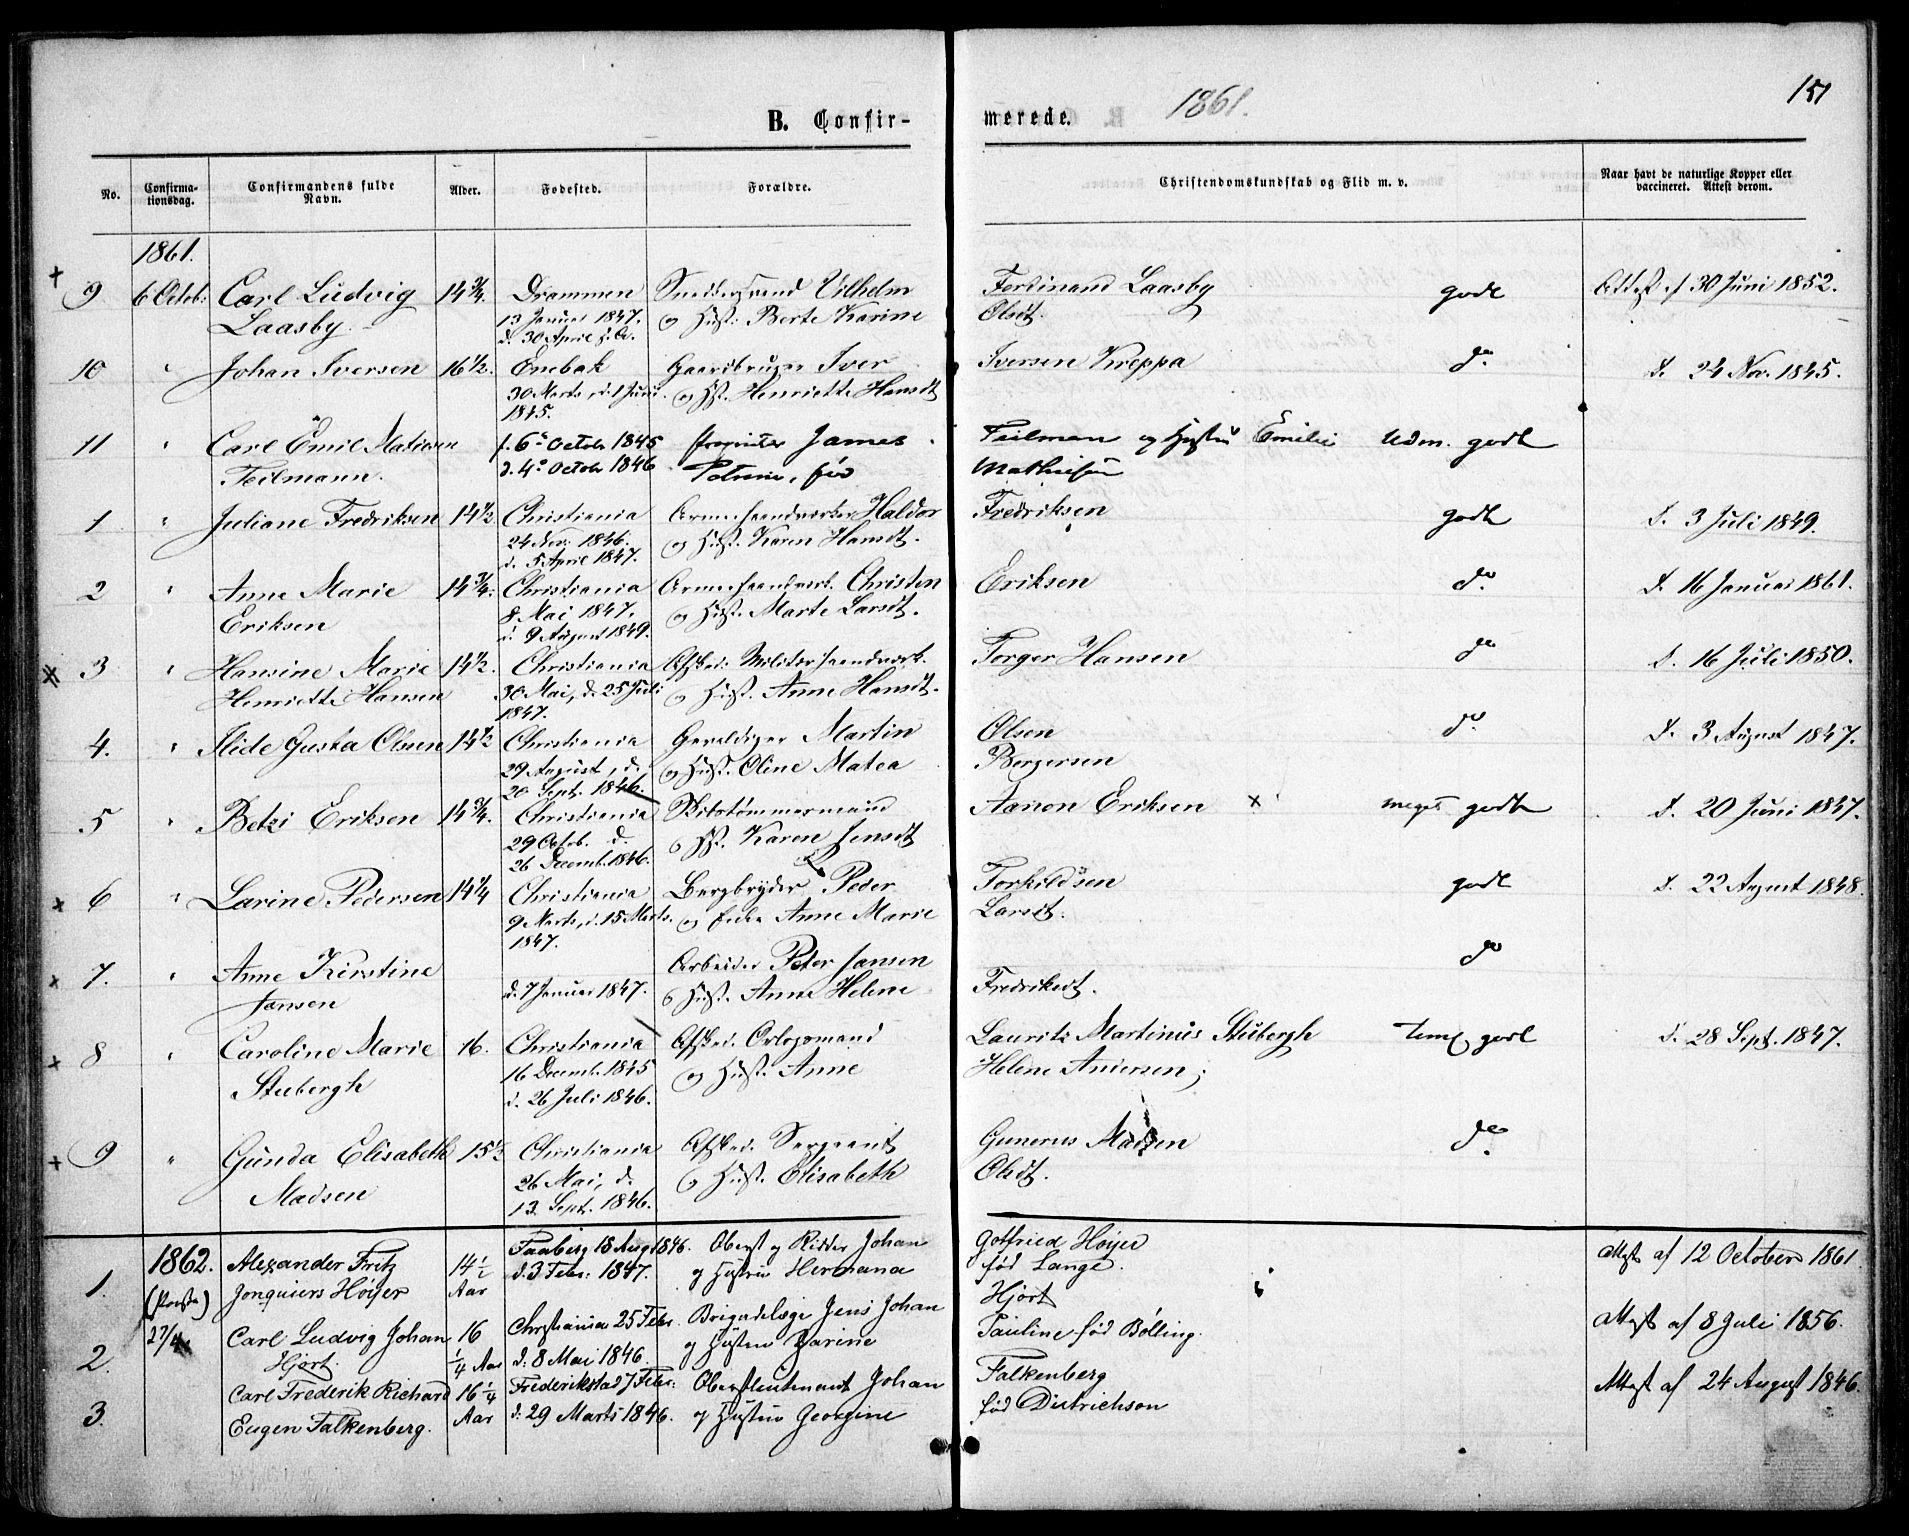 151
1861.
B. Confir-
merede.
No.
Confirma-
tionsdag.
Confirmandens fulde
Navn.
Alder.
Fødested.
Forældre.
Christendomskundskab og Flid m. v.
Naar havt de naturlige Kopper eller
vaccineret. Attest derom.
1861.
9 6 Octob: Carl Ludvig 14 3/4. Drammen Vilhelm Ferdinand Laasby godt Attest af 30 Juni 1852.
Laasby. 13 Januar 1847. og Hust: Berte Karine Olsdt.
d. 30 April s. A.
10 " Johan Iversen 16 1/2. Enebak Gaardbruger Iver Iversen Kreppa do. d. 24 Nov. 1845.
30 Marts, d. 1 Juni og Hst. Henriette Hansdt
1845.
11 " Carl Emil Matiesen f. 6te Octobr 1846 James Teilman og Hustru Emilie Udm. godt
Teilmann. d. 4de Octobr 1846 Petrine, fød Mathiesen
1 " Juliane Fredriksen 14 1/2 Christiania Haldor Fredriksen godt d. 3 Juli 1849.
24 Nov: 1846. og Hust. Karen Hansdt.
d. 5 April 1847.
2 " Anne Marie 14 3/4. Christiania Christen Eriksen do. d. 16 Januar 1861.
Eriksen 8 Mai 1847. og Hust. Marte Larsdt.
d. 9 August 1849.
3 " Hansine Marie 14 1/2. Christiania Afsked: Torger Hansen do d. 16 Juli 1850.
Henriette Hansen 30 Mai, d. 25 Juli og Hust. Anne Hansdt.
1847.
4. " Gusta Olsen 14 1/2 Christiania Martin Olsen do. d. 3 August 1847.
29 August, d. og Hust. Oline Matea Bergersen
20 Sept. 1846.
5 " Betzi Eriksen 14 3/4. Christiania Skibstømmermand Aanon Eriksen x meget godt d. 20 Juni 1847.
29 Octob. d. og Hst. Karen Jensdt
26 Decemb. 1846.
x 6 " Larine Pedersen 14 1/4 Christiania Bergbryder Peder Torkildsen godt d. 22 August 1848.
9 Marts, d. 15 Marts. og Anne Marie Larsdt.
1847.
x 7. " Anne Kirstine Arbeider Peter Jansen do
Jansen d. 7 Januar 1847. og Hust. Anne Helene Fredriksdt.
x 8 " Caroline Marie 16. Christiania Afsked: Orlogsmand Laurits Martinus Stubergh temel godt d. 28 Sept. 1847.
Stubergh 16 Decemb. 1845 og Hust. Anne Helene Andersen;
d. 26 Juli 1846.
x 9 " Gunda Elisabeth 15 1/2 Christiania Afsked: Sergeant Gunerus Madsen do.
Madsen 26 Mai, d. og Hust. Elisabeth Olsdt.
13. Sept. 1846.
1. 1862. Alexander Fritz 14 1/2 Faaberg 18 Aug 1846. Oberst og Ridder Johan Gotfried Høyer Attest af 12 October 1861
Jonquiers Høyer Aar d. 3 Febr: 1847. og Hustru Hermana fød Lange.
2. 27/4. Carl Ludvig Johan 16 Christiania 25 Febr. Brigadelæge Jens Johan Hjort Attest af 8 Juli 1856.
Hjort. 1/4 Aar d: 8 Mai 1846. og Hustru Pauline fød Bölling.
3. Carl Frederik Richard 16 1/4 Frederikstad 7 Febr: Oberstlieutenant Johan Falkenberg Attest af 24 August 1846.
Eugen Falkenberg. Aar d: 29 Marts 1846. og Hustru Georgine fød Dietrichson